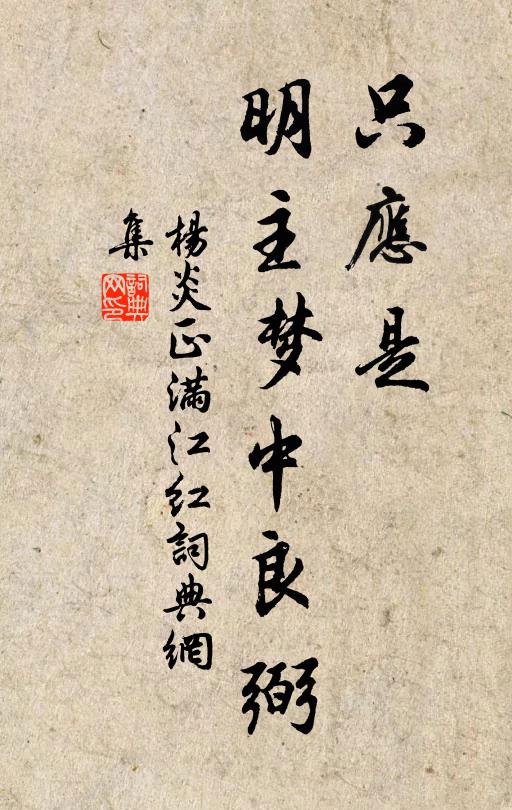 只應是
明主梦中良弼
楊炎正满江红詞典網
集
詞典网印